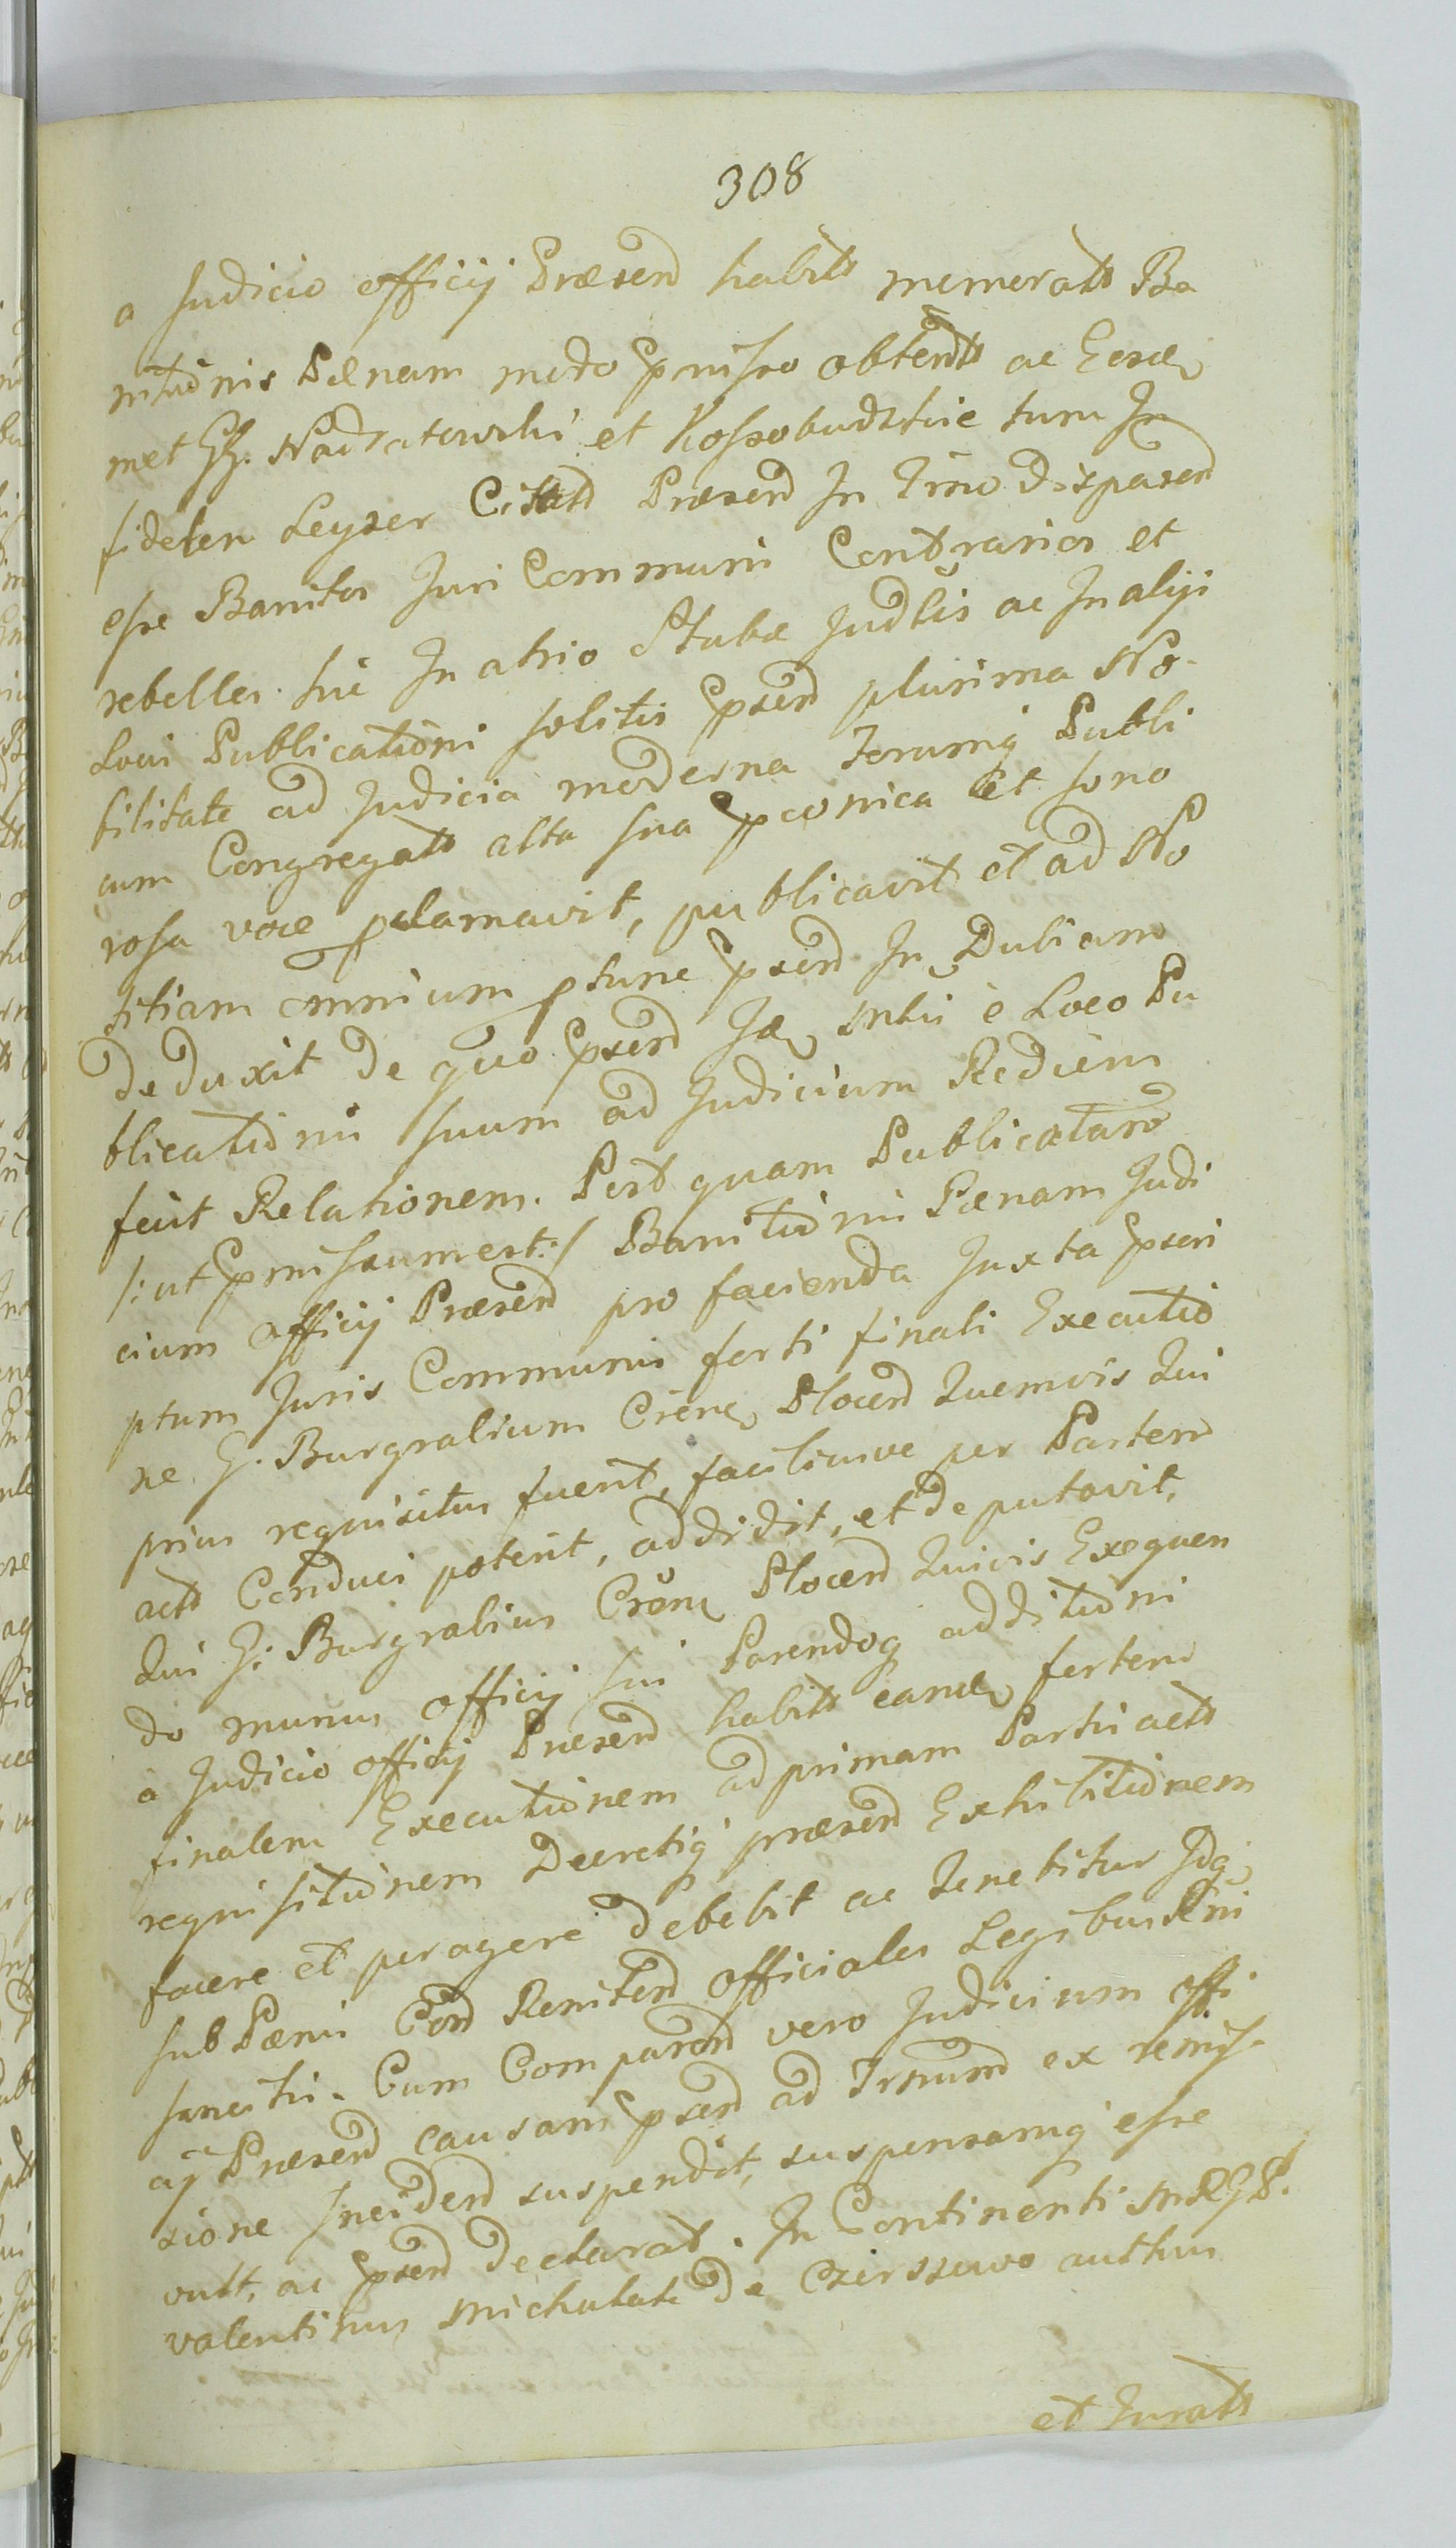 308
a Judicio officij Præsend habito memorats Ba
nitionis Pænam modo Præmisso obtents ac Eosd
met GG. Nadratowski et Kossobudzkie tum In
fidelem Leyzer Citatd Præsend In Trno Disparend
esse Banitos Juri Communi Contrarios et
rebelles. hic In atrio Stubæ Judlis ac In alijs
Locis Publicationi solitis Præsend plurima No-
bilitate ad Judicia moderna Forumq Publi
cum Congregats alta sua præconica et sono
rosa voce proclamavit, publicavit et ad No
titiam omnium protunc præsend In Dubiam
deduxit de quo Præsend Id Mtri è Loco Pu
blicationis suum ad Judicium Rediens
fecit Relationem. Post quam Publicatam
/:ut Præmissum est:/ Banitionis Pænam Judi
cium officij Præsend pro facienda Juxta Præscri
ptum Juris Communis forti finali Executio
ne G. Burgrabium Crene Plocend Quemvis Qui
prius requisitus fuerit, faciliusve per Partem
acts Conduci poterit, addidit, et deputavit,
Qui G: Burgrabius Crem Plocend Quivis Exequen
do munus officij sui Parendoq additioni
à Judicio officij Præsend habits eand fortem
finalem Executionem ad primam Partis acts
requisitionem Decretiq præsend Exhibitionem
facere et peragere debebit ac tenebitur Idq
sub Pænis Con Renitend officiales Legibus Rni
sancitis. Cum Comparend vero Judicium offi
cij Præsend causam præsend ad Trnum ex remis-
sione Incidend suspendit, suspensamq esse
vult, ac præsend declarat. In Continenti MRGS.
valentinus Michalak de Czerszewo authen
et Jurats